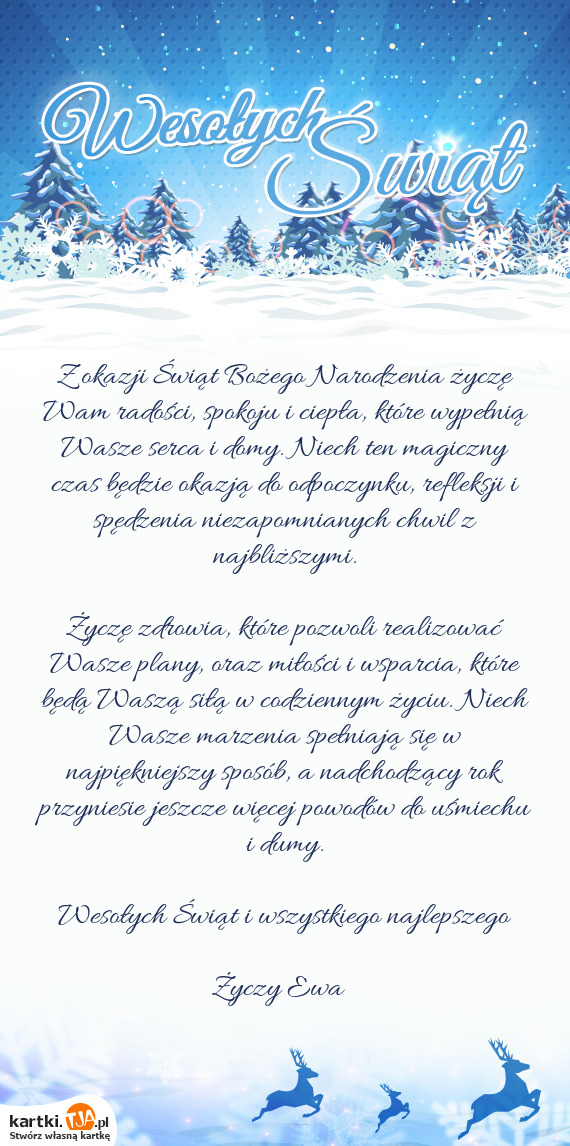 Wesołych
Świąt
Z okazji Świąt Bożego Narodzenia życzę
Wam radości, spokoju i ciepła, które wypełnią
Wasze serca i domy. Niech ten magiczny
czas będzie okazją do odpoczynku, refleksji i
spędzenia niezapomnianych chwil z
najbliższymi.
Życzę zdrowia, które pozwoli realizować
Wasze plany, oraz miłości i wsparcia, które
będą Waszą siłą w codziennym życiu. Niech
Wasze marzenia spełniają się w
najpiękniejszy sposób, a nadchodzący rok
przyniesie jeszcze więcej powodów do uśmiechu
i dumy.
Wesołych Świąt i wszystkiego najlepszego
Życzy Ewa
kartki.TJA.pl
Stwórz własną kartkę